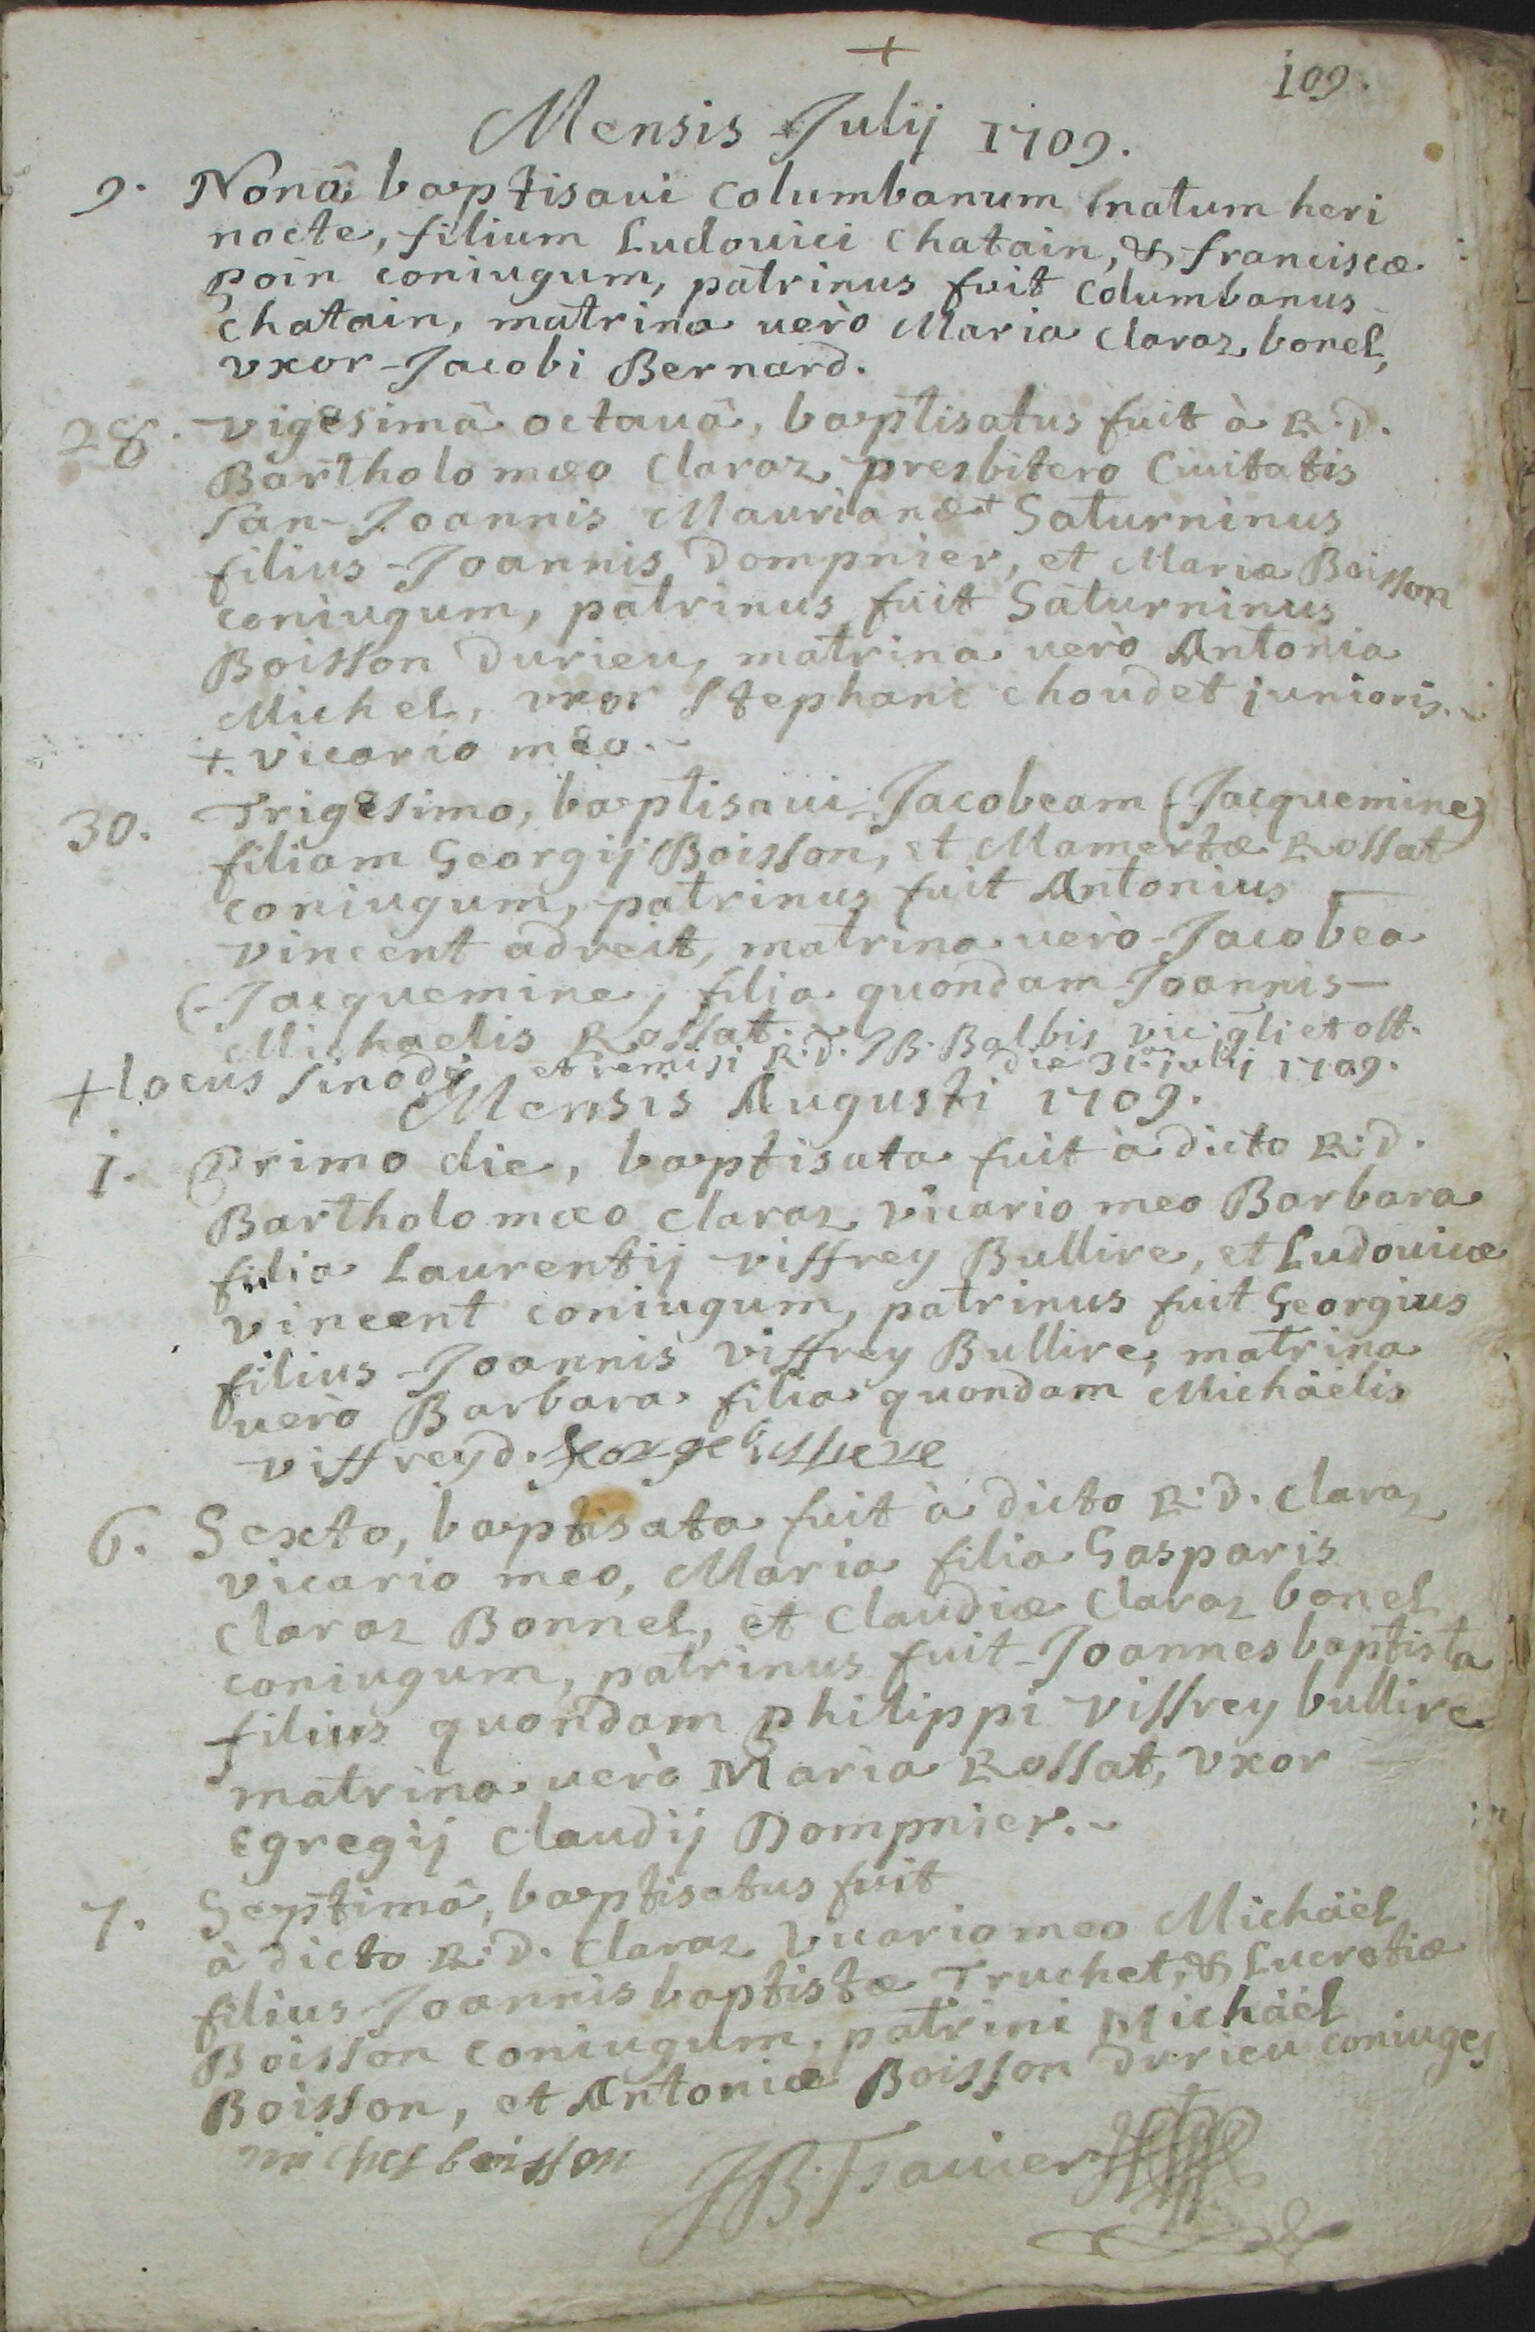 +
109.
Mensis Julij 1709.
9. Nonâ baptisaui Columbanum natum heri
nocte, filium Ludouici Chatain, & franciscæ
poin coniugum, patrinus fuit Columbanus
Chatain, matrina uerò Maria Claraz bonel,
vxor Jacobi Bernard.
28. vigesimâ octauâ, baptisatus fuit à R.D.
Bartholomæo Claraz presbitero Ciuitatis
San-Joannis Maurianæ + Saturninus
filius Joannis Dompnier, et Mariæ Boisson
coniugum, patrinus fuit Saturninus
Boisson Durieu, matrina uerò Antonia
Michel, vxor Stephani Choudet junioris.
+. vicario meo.
30. Trigesimo, baptisaui Jacobeam (Jacquemine)
filiam Georgij Boisson, et Mamertæ Rossat
coniugum, patrinus fuit Antonius
vincent adreit, matrina uerò Jacobea
(Jacquemine, filia quondam Joannis
Michaelis Rossat.
+ locus sinodi et remisi R.D. JB. Balbis vic. gli et off.
die 31a julij 1709.
Mensis Augusti 1709.
1. Primo die, baptisata fuit à dicto R.D.
Bartholomæo Claraz vicario meo Barbara
filia Laurentij viffrey Bullire, et Ludouicæ
vincent coniugum, patrinus fuit Georgius
filius Joannis viffrey Bullire, matrina
uerò Barbara filia quondam Michäelis
viffreyd.
6. Sexto, baptisata fuit à dicto R.D. Claraz
vicario meo, Maria filia Gasparis
Claraz Bonnel, et Claudiæ Claraz bonel
coniugum, patrinus fuit Joannes baptista
filius quondam philippi viffrey bullire
matrina uerò Maria Rossat, vxor
Egregij Claudij Dompnier.
7. Septimâ, baptisatus fuit
à dicto R.D. Claraz vicario meo Michäel
filius Joannis baptistæ Truchet, & Lucretiæ
Boisson coniugum, patrini Michäel
Boisson, et Antoniæ Boisson Durieu coniuges
michel boisson